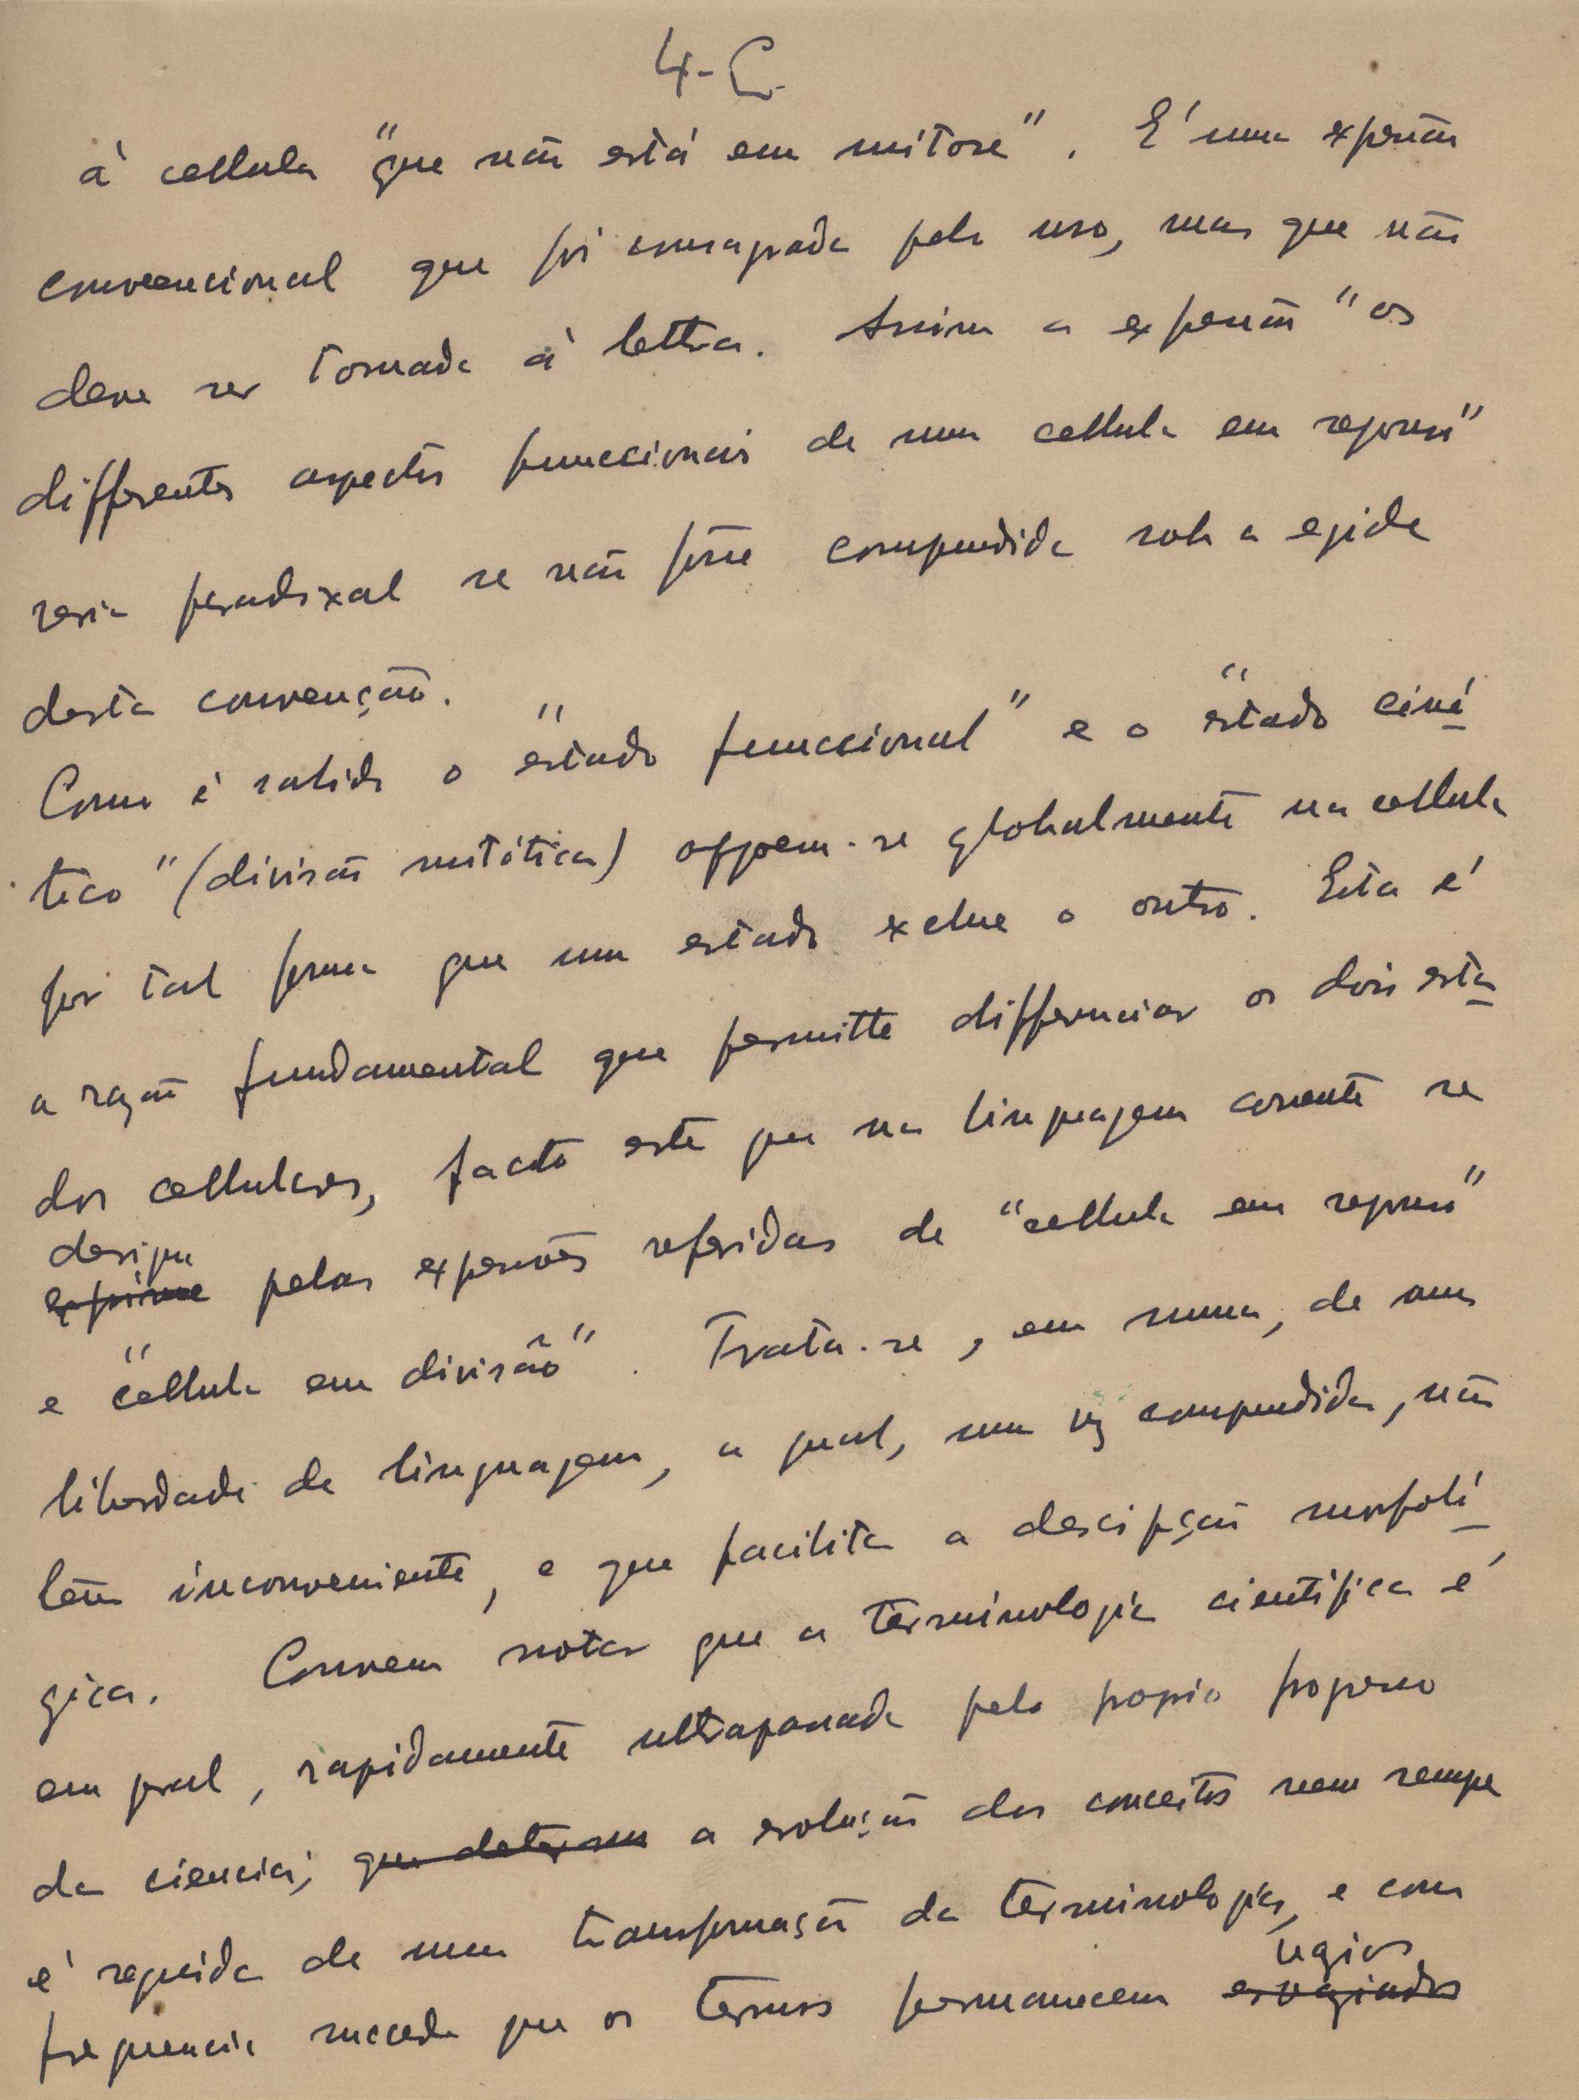 4-C.
á cellula "que não está em mitose". É uma expressão
convencional que foi consagrada pelo uso, mas que não
deve ser tomada á lettra. Assim a expressão "os
differentes aspectos funccionais de uma cellula em repouso"
seria paradoxal se não fosse comprendida sob a egide
desta convenção.
Como é sabido o "estado funccional" e o "estado ciné
tico" (divisão mitótica) oppoem-se globalmente na cellula
por tal forma que um estado exclue o outro. Esta é
a razão fundamental que permitte differenciar os dois esta
dos cellulares, facto este que na linguagem corrente se
designa
exprime pelas expressões referidas de "cellula em repouso"
e "cellula em divisão". Trata-se, em suma, de uma
liberdade de linguagem, a qual, uma vez comprendida, não
tem inconveniente, e que facilita a descripção morfoló
gica. Convem notar que a terminologia cientifica é
em geral, rapidamente ultrapassada pelo proprio progresso
da ciencia; que a evolução dos conceitos nem sempre
é seguida de uma transformação da terminologia, e com
frequencia succede que os termos permanecem